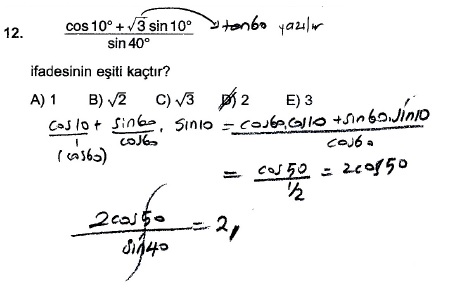 12. (cos 10° + √3 sin 10°) / sin 40° → tan60 yazılır
ifadesinin eşiti kaçtır?
A) 1 B) √2 C) √3 D) 2 E) 3
cos10/1 + sin60/cos60 . sin10 = (cos60.cos10 + sin60.sin10) / cos60
(cos60)
= cos50 / (1/2) = 2cos50
2cos50 / sin40 = 2,